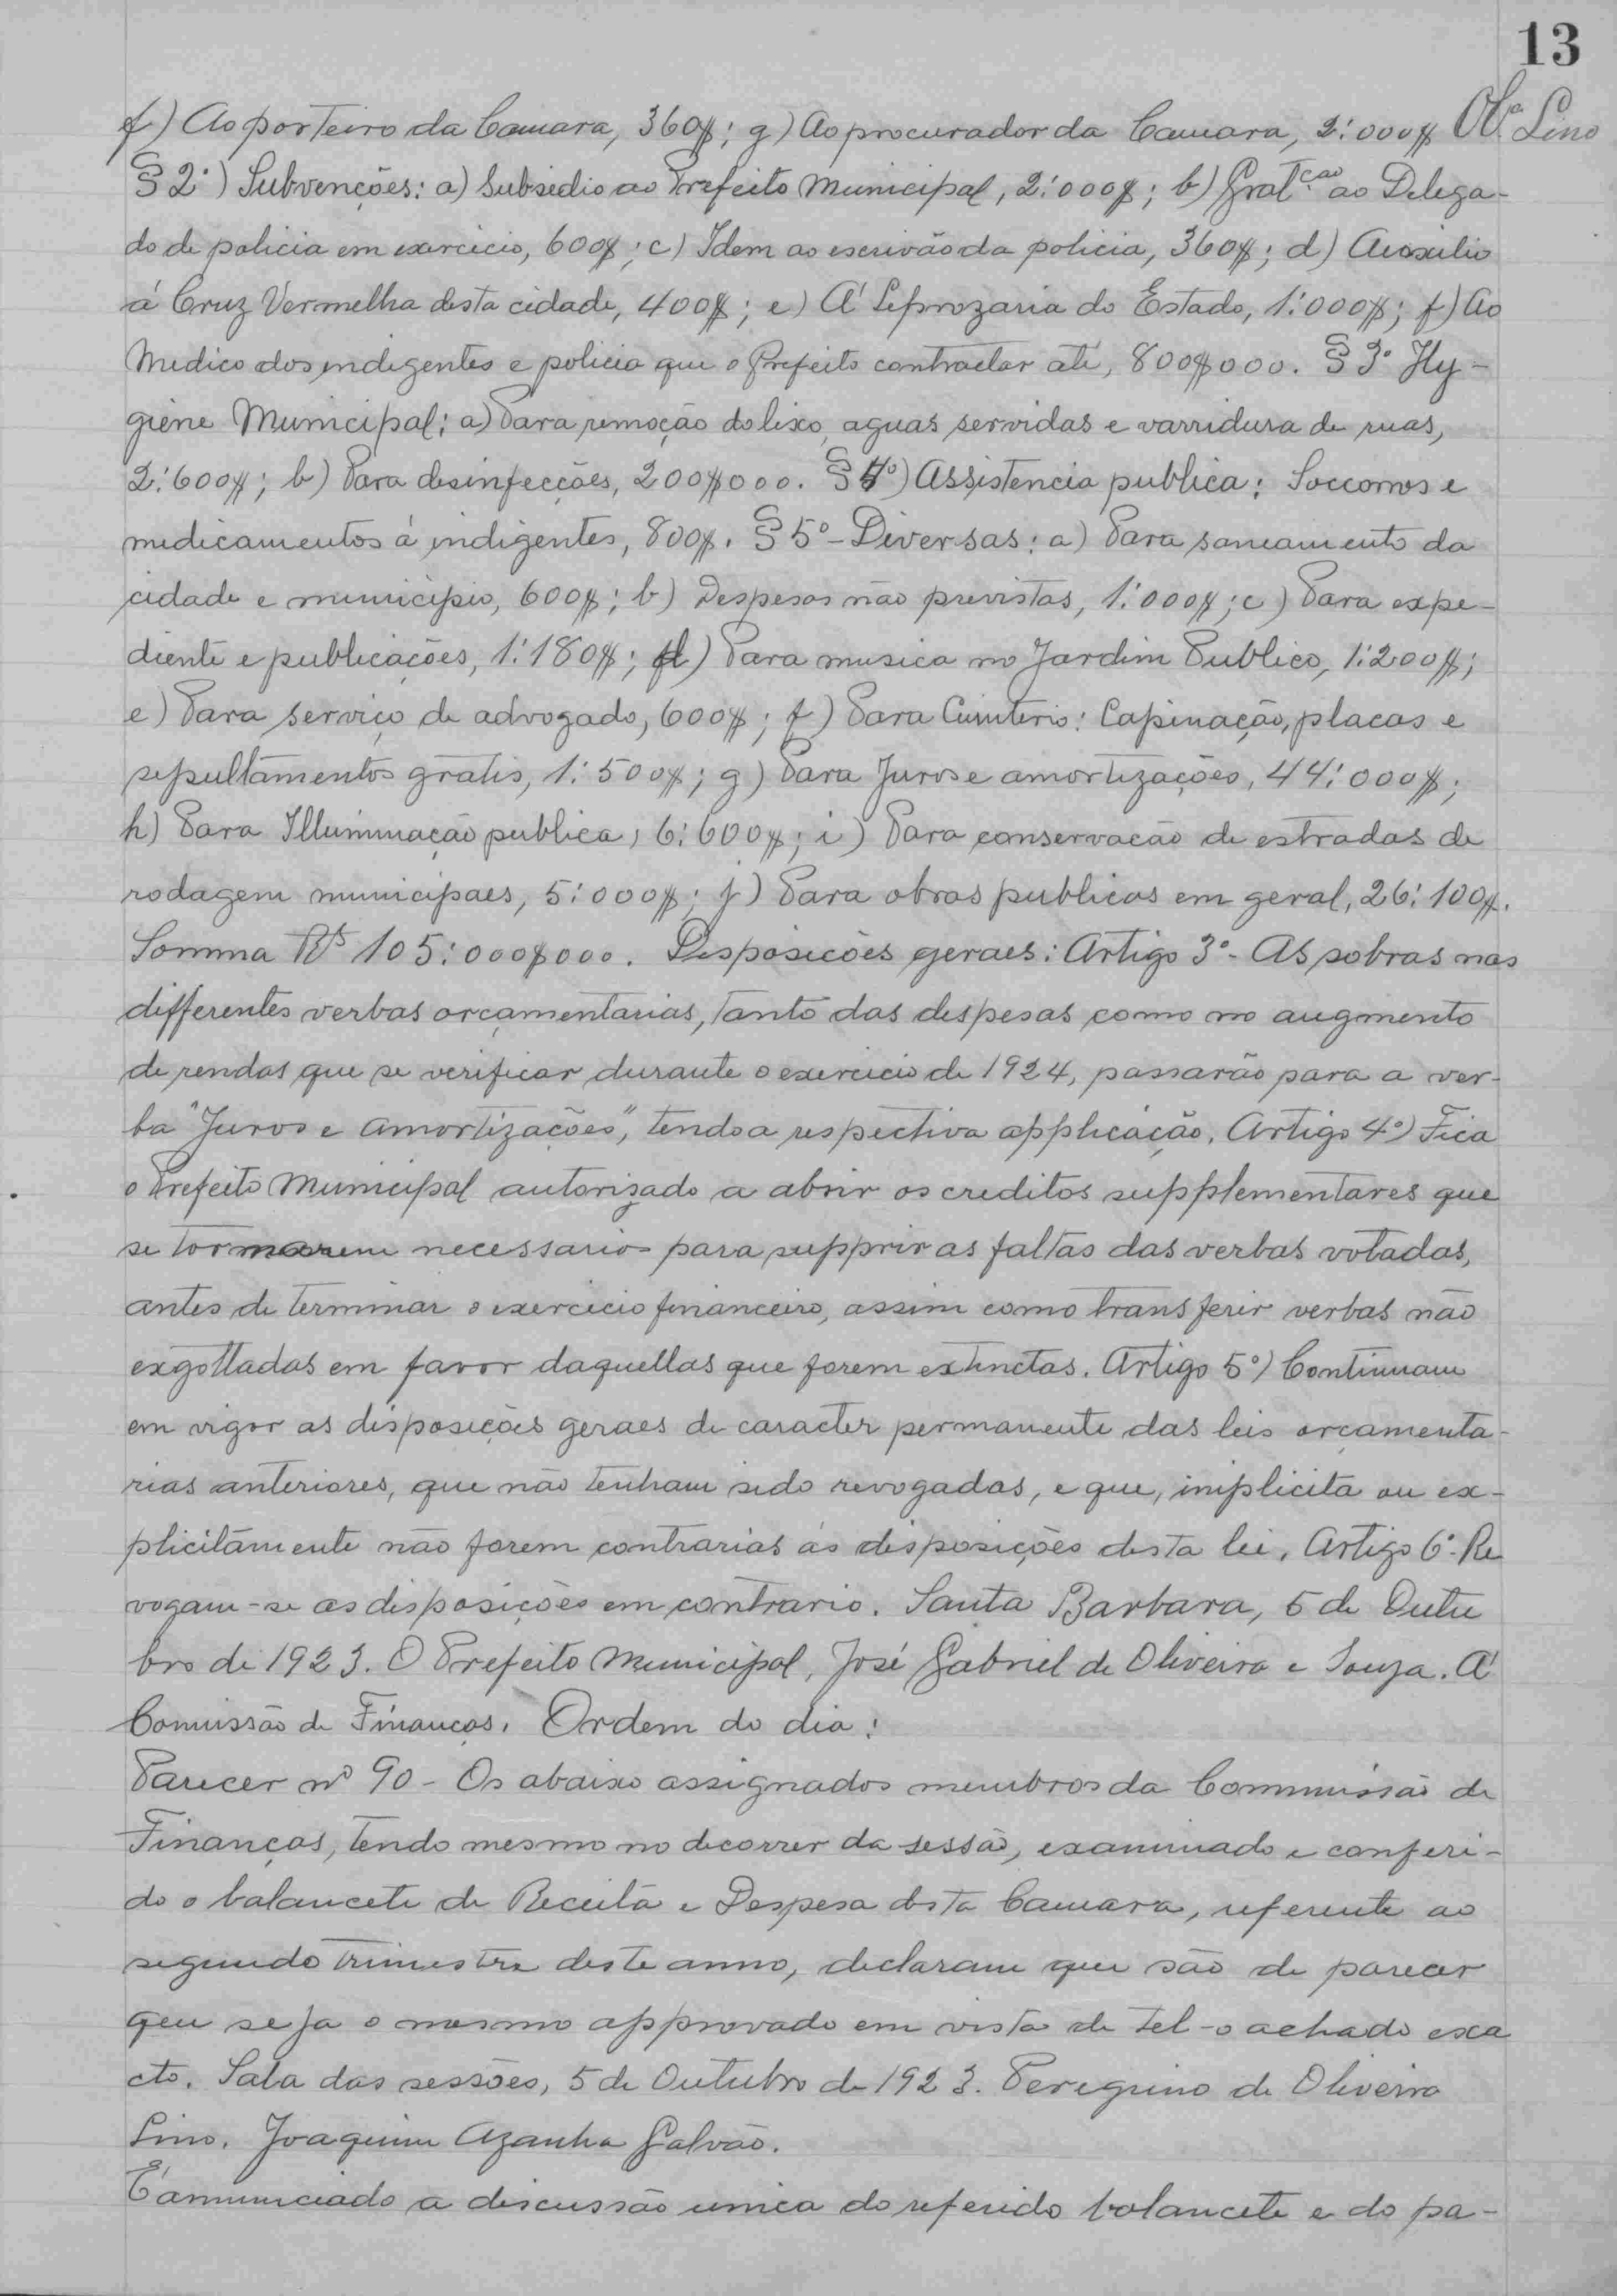 13
f) Ao porteiro da Camara, 360$; g) Ao procurador da Camara, 2:000$ Olª Lino
§ 2º) Subvenções: a) Subsidio ao Prefeito Municipal, 2:000$; b) Gratᶜᵃᵒ ao Delega-
do de policia em exercicio, 600$; c) Idem ao escrivão da policia, 360$; d) Auxilio
á Cruz Vermelha desta cidade, 400$; e) A' Leprozaria do Estado, 1:000$; f) Ao
Medico dos indigentes e policia que o Prefeito contractar até, 800$000. § 3º Hy-
giene Municipal: a) Para remoção do lixo, aguas servidas e varridura de ruas,
2:600$; b) Para desinfecções, 200$000. § 4º) Assistencia publica: Soccorros e
medicamentos á indigentes, 800$. § 5º - Diversas: a) Para saneamento da
cidade e municipio, 600$; b) Despesas não previstas, 1:000$; c) Para expe-
diente e publicações, 1:180$; d) Para musica no Jardim Publico, 1:200$;
e) Para serviço de advogado, 600$; f) Para Cimiterio: Capinação, placas e
sepultamentos gratis, 1:500$; g) Para Juros e amortizações, 44:000$;
h) Para Illuminação publica, 6:600$; i) Para conservacão de estradas de
rodagem municipaes, 5:000$; j) Para obras publicas em geral, 26:100$.
Somma Rˢ 105:000$000. Disposições geraes: Artigo 3º - As sobras nas
differentes verbas orçamentarias, tanto das despesas como no augmento
de rendas que se verificar durante o exercicio de 1924, passarão para a ver-
ba "Juros e Amortizações", tendo a respectiva applicação. Artigo 4º) Fica
o Prefeito Municipal autorizado a abrir os creditos supplementares que
se tornarem necessarios para supprir as faltas das verbas votadas,
antes de terminar o exercicio financeiro, assim como transferir verbas não
exgottadas em favor daquellas que forem extinctas. Artigo 5º) Continuam
em vigor as disposições geraes de caracter permanente das leis orçamenta-
rias anteriores, que não tenham sido revogadas, e que, implicita ou ex-
plicitamente não forem contrarias ás disposições desta lei. Artigo 6º - Re
vogam-se as disposições em contrario. Santa Barbara, 5 de Outu
bro de 1923. O Prefeito Municipal, José Gabriel de Oliveira e Souza. A'
Comissão de Finanças. Ordem do dia:
Parecer nº 90 - Os abaixo assignados membros da Commissão de
Finanças, tendo mesmo no decorrer da sessão, examinado e conferi-
do o balancete de Receita e Despesa desta Camara, referente ao
segundo trimestre deste anno, declaram que são de parecer
que seja o mesmo approvado em vista de tel-o achado exa
cto. Sala das sessões, 5 de Outubro de 1923. Peregrino de Oliveira
Lino. Joaquim Azanha Galvão.
E' annunciado a discussão unica do referido balancete e do pa-